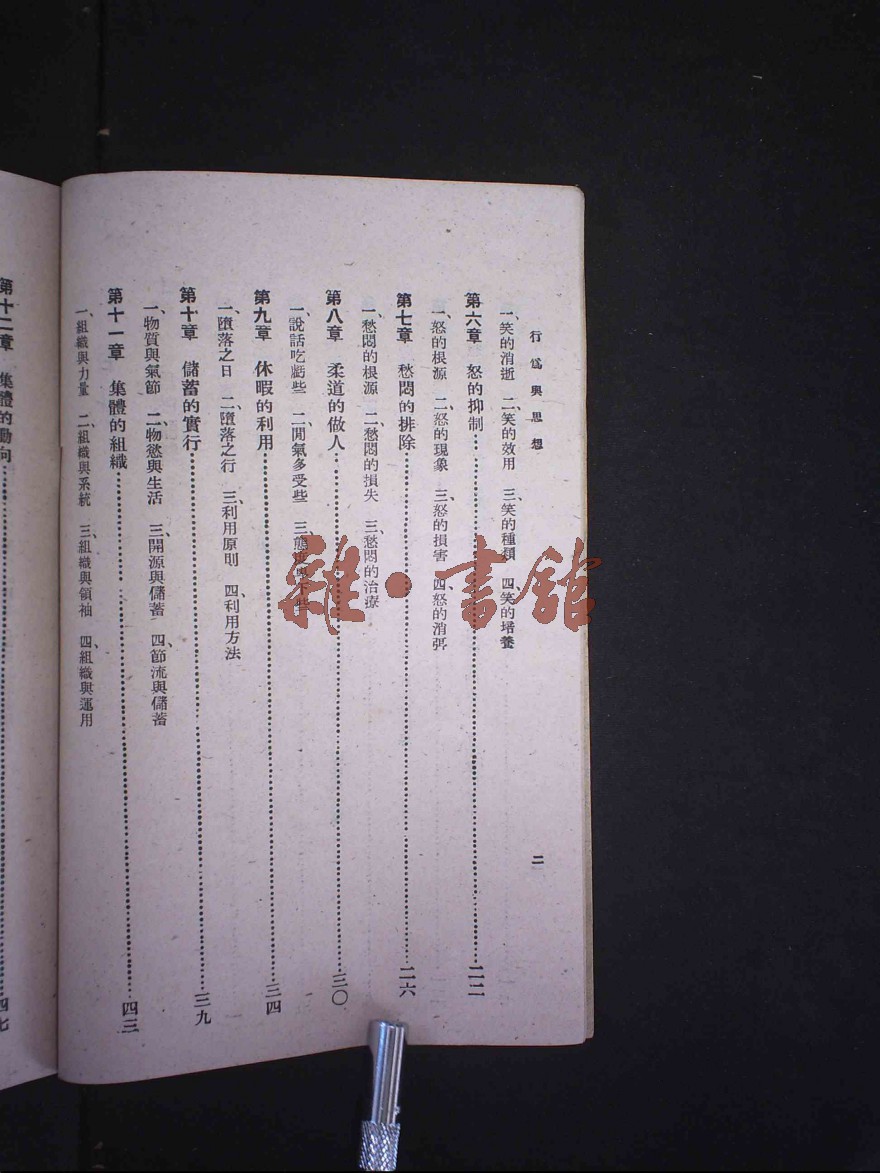 行爲與思想
一、笑的消逝 二、笑的效用 三、笑的種類 四、笑的培養
第六章 怒的抑制……二二
一、怒的根源 二、怒的現象 三、怒的損害 四、怒的消弭
第七章 愁悶的排除……二六
一、愁悶的根源 二、愁悶的損失 三、愁悶的治療
第八章 柔道的做人……三〇
一、說話吃虧些 二、閒氣多受些 三、態度
第九章 休暇的利用……三四
一、墮落之日 二、墮落之行 三、利用原則 四、利用方法
第十章 儲蓄的實行……三九
一、物質與氣節 二、物慾與生活 三、開源與儲蓄 四、節流與儲蓄
第十一章 集體的組織……四三
一、組織與力量 二、組織與系統 三、組織與領袖 四、組織與運用
二
第十二章 集體的動向……四七
雜·書館